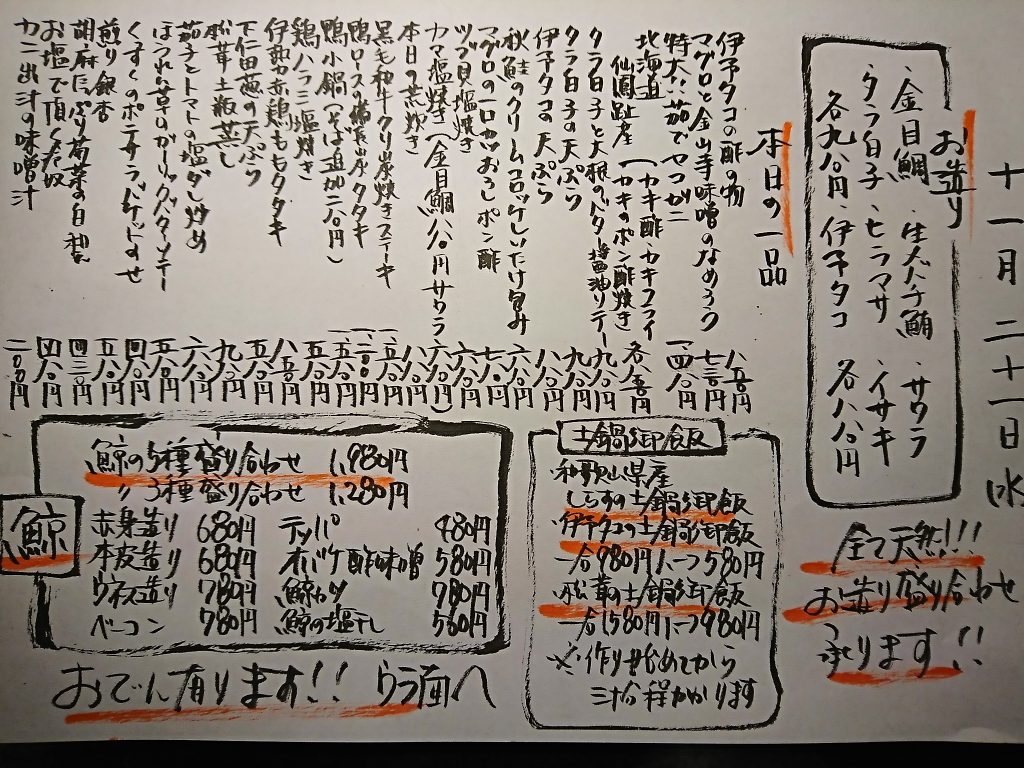 十一月二十一日㈬
お造り
・金目鯛 ・生本子鮪 ・サワラ
・タラ白子 ・ヒラマサ ・イサキ
各九八〇円 ・伊予タコ 各八八〇円
全て天然!!!
お造り盛り合わせ
承ります!!
本日の一品
伊予タコの酢の物 八五〇円
マグロと金山寺味噌のなめろう 七三〇円
特大!! 茹でセコガニ 一、四八〇円
北海道
仙鳳趾産 (カキ酢・カキフライ
(カキのポン酢焼き) 各八五〇円
タラ白子と大根のバター醤油ソテー 九八〇円
タラ白子の天ぷら 九八〇円
伊予タコの天ぷら 八八〇円
秋鮭のクリームコロッケしいたけ包み 六八〇円
マグロの一口カツおろしポン酢 七八〇円
ツブ貝塩焼き 六八〇円
本日の煮炊き
カマ塩焼き(金目鯛八八〇円サワラ六八〇円)
黒毛和牛クリ炭焼きステーキ
鴨ロース備長炭タタキ
鴨小鍋(そば追加二八〇円)
鶏ハラミ塩焼き
伊勢赤鶏ももタタキ 八五〇円
下仁田葱の天ぷら 五八〇円
松茸土瓶蒸し 九八〇円
茄子とトマトの塩ダレ炒め 六八〇円
ほうれん草のガーリックバターソテー 五八〇円
くずくのポン酢サラダ
煎り銀杏
胡麻たっぷり
お塩で頂く
カニ出汁の味噌汁
土鍋御飯
和歌山県産
しらすの土鍋御飯
伊予タコの土鍋御飯
一合980円 ハーフ580円
松茸の土鍋御飯
一合1580円 ハーフ980円
※作り始めてから
三十分程かかります
鯨
鯨の5種盛り合わせ 1,980円
〃 3種盛り合わせ 1,280円
赤身造り 680円 テッパ 480円
本皮造り 680円 オバケ酢味噌 580円
ウネス造り 780円 鯨カツ 780円
ベーコン 780円 鯨の塩干し 560円
おでん有ります!! ウラ面へ